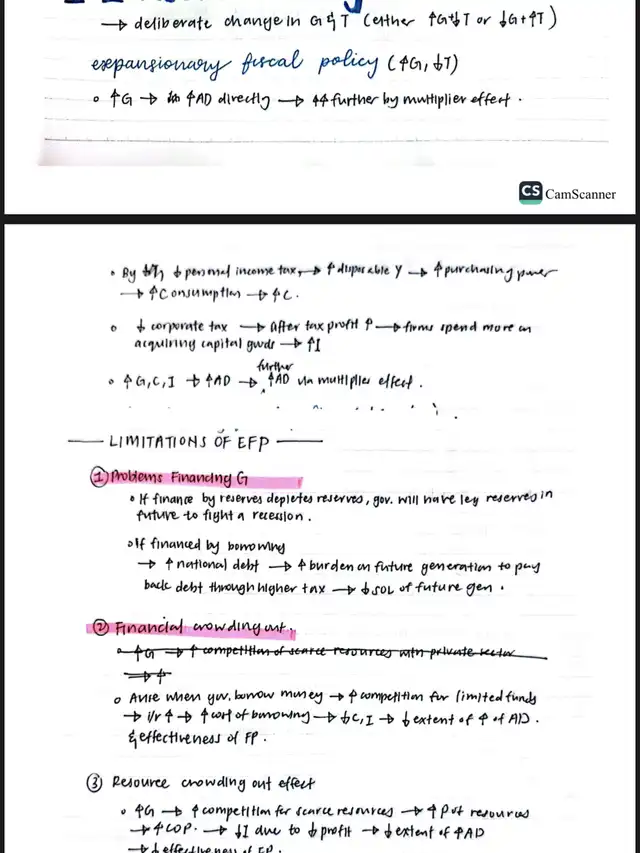 → deliberate change in G & T (either ↑G↓T or ↓G+↑T)
expansionary fiscal policy (↑G, ↓T)
• ↑G → ↑AD directly → ↑↑ further by multiplier effect.
CS CamScanner
• By ↓ personal income tax, → ↑ disposable Y → ↑ purchasing power
→ ↑ Consumption → ↑C.
• ↓ corporate tax → After tax profit ↑ → firms spend more on
acquiring capital goods → ↑I
further
• ↑G,C,I → ↑AD → ↑AD via multiplier effect.
LIMITATIONS OF EFP
① Problems Financing G
• If finance by reserves depletes reserves, gov. will have less reserves in
future to fight a recession.
• If financed by borrowing
→ ↑ national debt → ↑ burden on future generation to pay
back debt through higher tax → ↓ SOL of future gen.
② Financial crowding out.
• ↑G → ↑ competition of scarce resources with private sector
→ ↑
• Arise when gov. borrow money → ↑ competition for limited funds
→ i/r ↑ → ↑ cost of borrowing → ↓C,I → ↓ extent of ↑ of AD.
& effectiveness of FP.
③ Resource crowding out effect
• ↑G → ↑ competition for scarce resources → ↑ P of resources
→ ↑ COP. → ↓I due to ↓ profit → ↓ extent of ↑AD
→ ↓ effectiveness of FP.